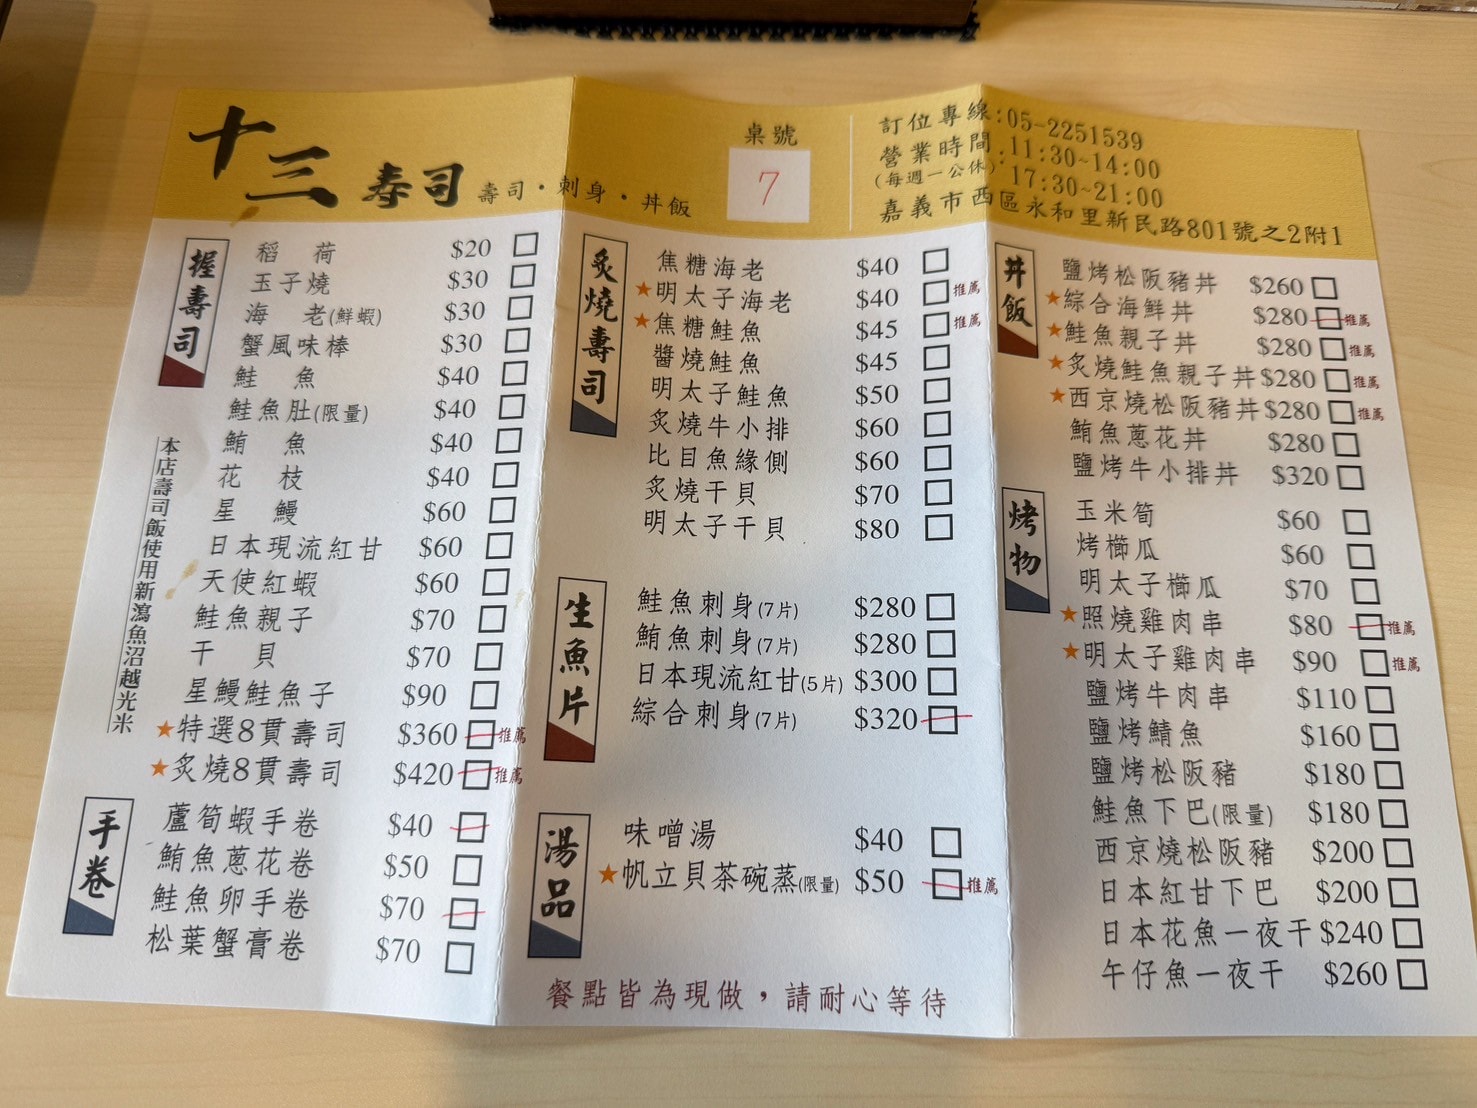 十三壽司 壽司・刺身・丼飯
桌號
7
訂位專線:05-2251539
營業時間:11:30~14:00
(每週一公休) 17:30~21:00
嘉義市西區永和里新民路801號之2附1
握壽司
稻荷 $20
玉子燒 $30
海老(鮮蝦) $30
蟹風味棒 $30
鮭魚 $40
鮭魚肚(限量) $40
鮪魚 $40
花枝 $40
星鰻 $60
日本現流紅甘 $60
天使紅蝦 $60
鮭魚親子 $70
干貝 $70
星鰻鮭魚子 $90
★特選8貫壽司 $360 推薦
★炙燒8貫壽司 $420 推薦
本店壽司飯使用新瀉魚沼越光米
手卷
蘆筍蝦手卷 $40
鮪魚蔥花卷 $50
鮭魚卵手卷 $70
松葉蟹膏卷 $70
炙燒壽司
焦糖海老 $40
★明太子海老 $40 推薦
★焦糖鮭魚 $45 推薦
醬燒鮭魚 $45
明太子鮭魚 $50
炙燒牛小排 $60
比目魚緣側 $60
炙燒干貝 $70
明太子干貝 $80
生魚片
鮭魚刺身(7片) $280
鮪魚刺身(7片) $280
日本現流紅甘(5片) $300
綜合刺身(7片) $320
湯品
味噌湯 $40
★帆立貝茶碗蒸(限量) $50 推薦
餐點皆為現做,請耐心等待
丼飯
鹽烤松阪豬丼 $260
★綜合海鮮丼 $280 推薦
★鮭魚親子丼 $280 推薦
★炙燒鮭魚親子丼 $280 推薦
★西京燒松阪豬丼 $280 推薦
鮪魚蔥花丼 $280
鹽烤牛小排丼 $320
烤物
玉米筍 $60
烤櫛瓜 $60
明太子櫛瓜 $70
★照燒雞肉串 $80 推薦
★明太子雞肉串 $90 推薦
鹽烤牛肉串 $110
鹽烤鯖魚 $160
鹽烤松阪豬 $180
鮭魚下巴(限量) $180
西京燒松阪豬 $200
日本紅甘下巴 $200
日本花魚一夜干 $240
午仔魚一夜干 $260